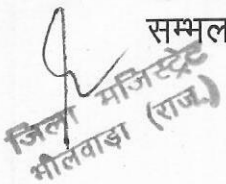 सम्भल
जिला मजिस्ट्रेट
भीलवाड़ा (राज.)